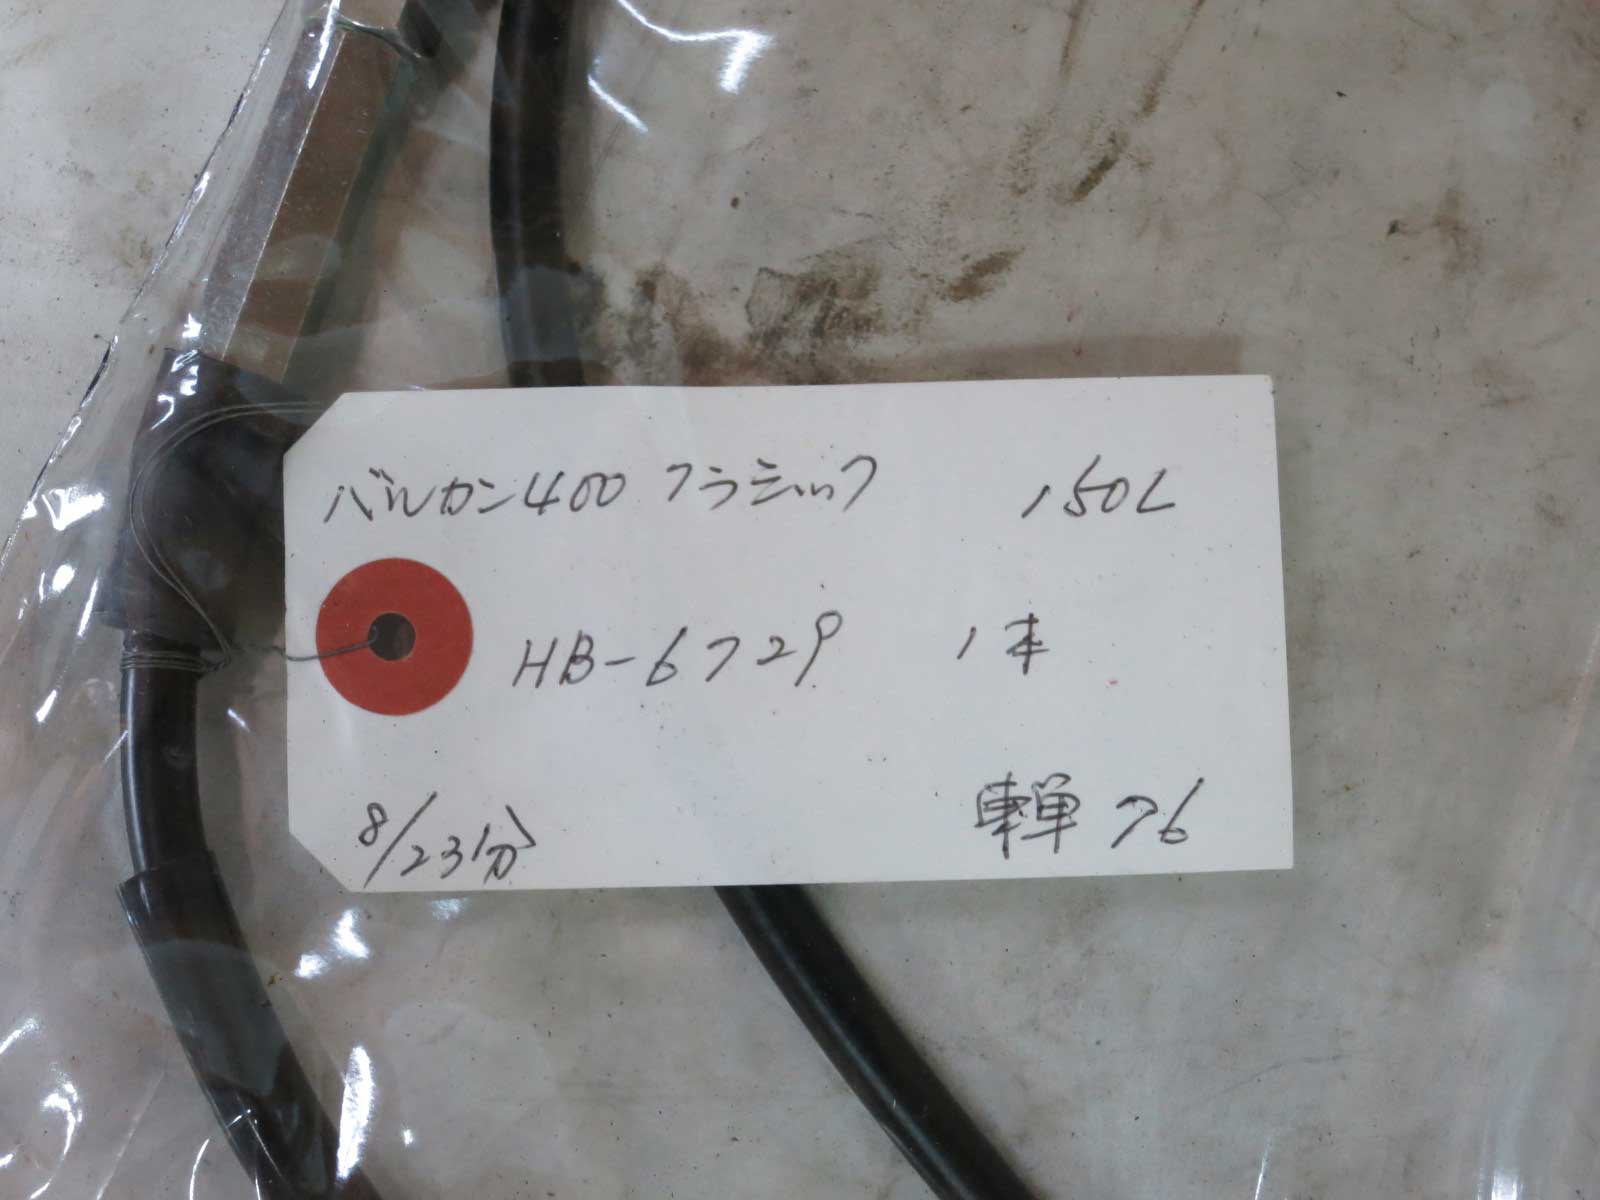 バルカン400 クラシック 150L
HB-6729 1本
8/23分 車単 76